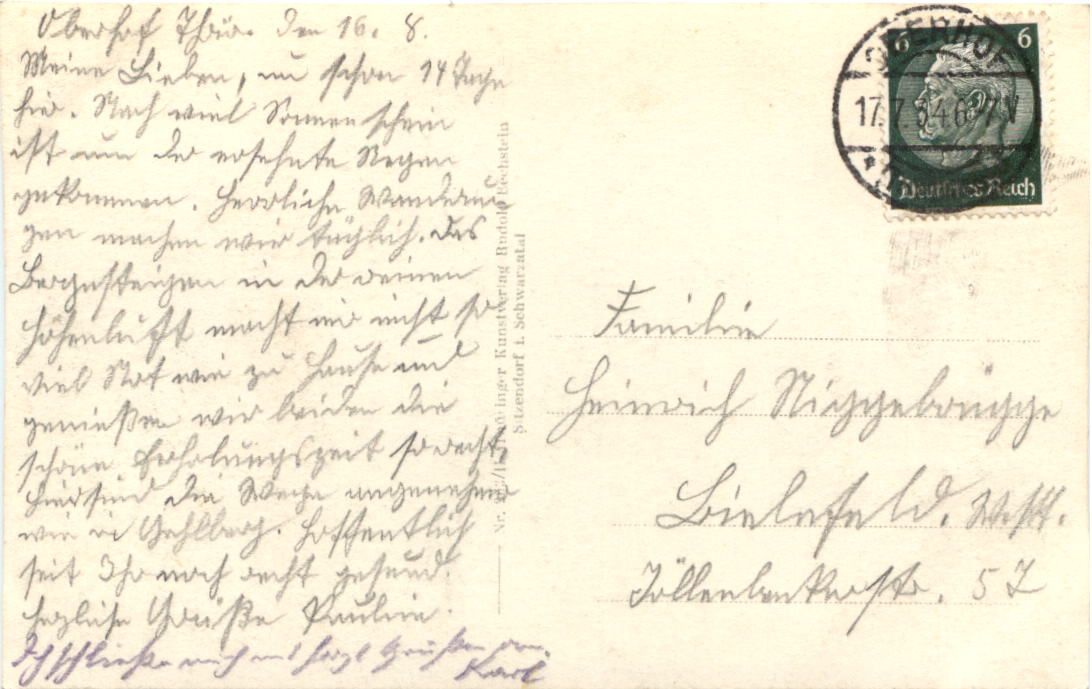 Oberhof Thür. den 16. 8.
Meine Lieben, nu schon 14 Tage
hier. Nach viel Sonnenschein
ist nun der ersehnte Regen
gekommen. Herrliche Wanderun
gen machen wir täglich. Das
Bergesteigen in der reinen
Höhenluft macht mir nicht so
viel Not wie zu Hause und
genießen wir beiden die
schöne Erholungszeit so recht.
Hier sind die Wege angenehmer
wie in Gehlberg. Hoffentlich
seit Ihr noch recht gesund.
Herzliche Grüße Pauline.
Ich schließe mich mit herzl Grüßen an.
Karl
Thüringer Kunstverlag Rudolf Bechstein
Sitzendorf i. Schwarzatal
OBERHOF
17.7.34.6-7V
6 6
Deutsches Reich
Familie
Heinrich Niggebrügge
Bielefeld. Westf.
Jöllenbeckerstr. 57